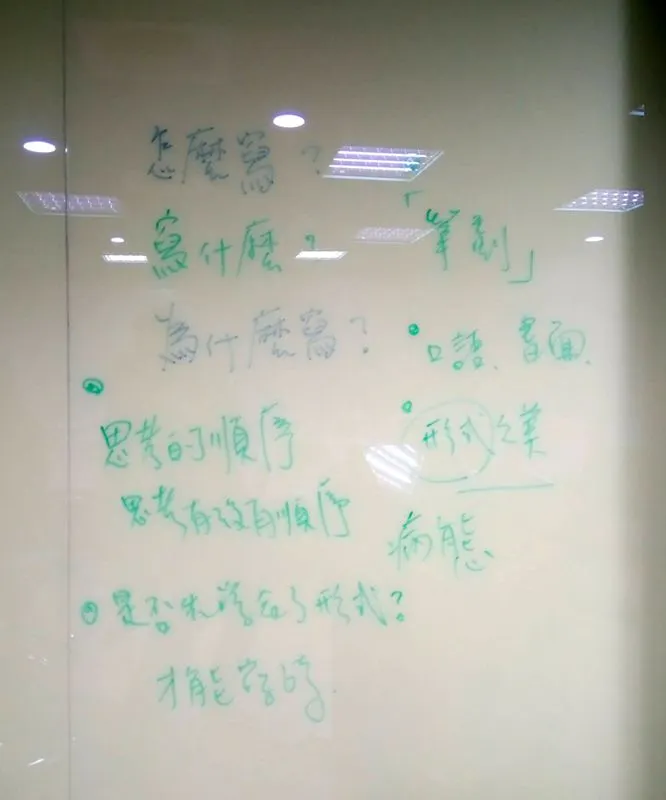 怎麼寫?
寫什麼?
為什麼寫?
思考的順序
思考有沒有順序
是否先學會了形式?
才能寫詩
「筆劃」
口語、書面、
形式之美
病態